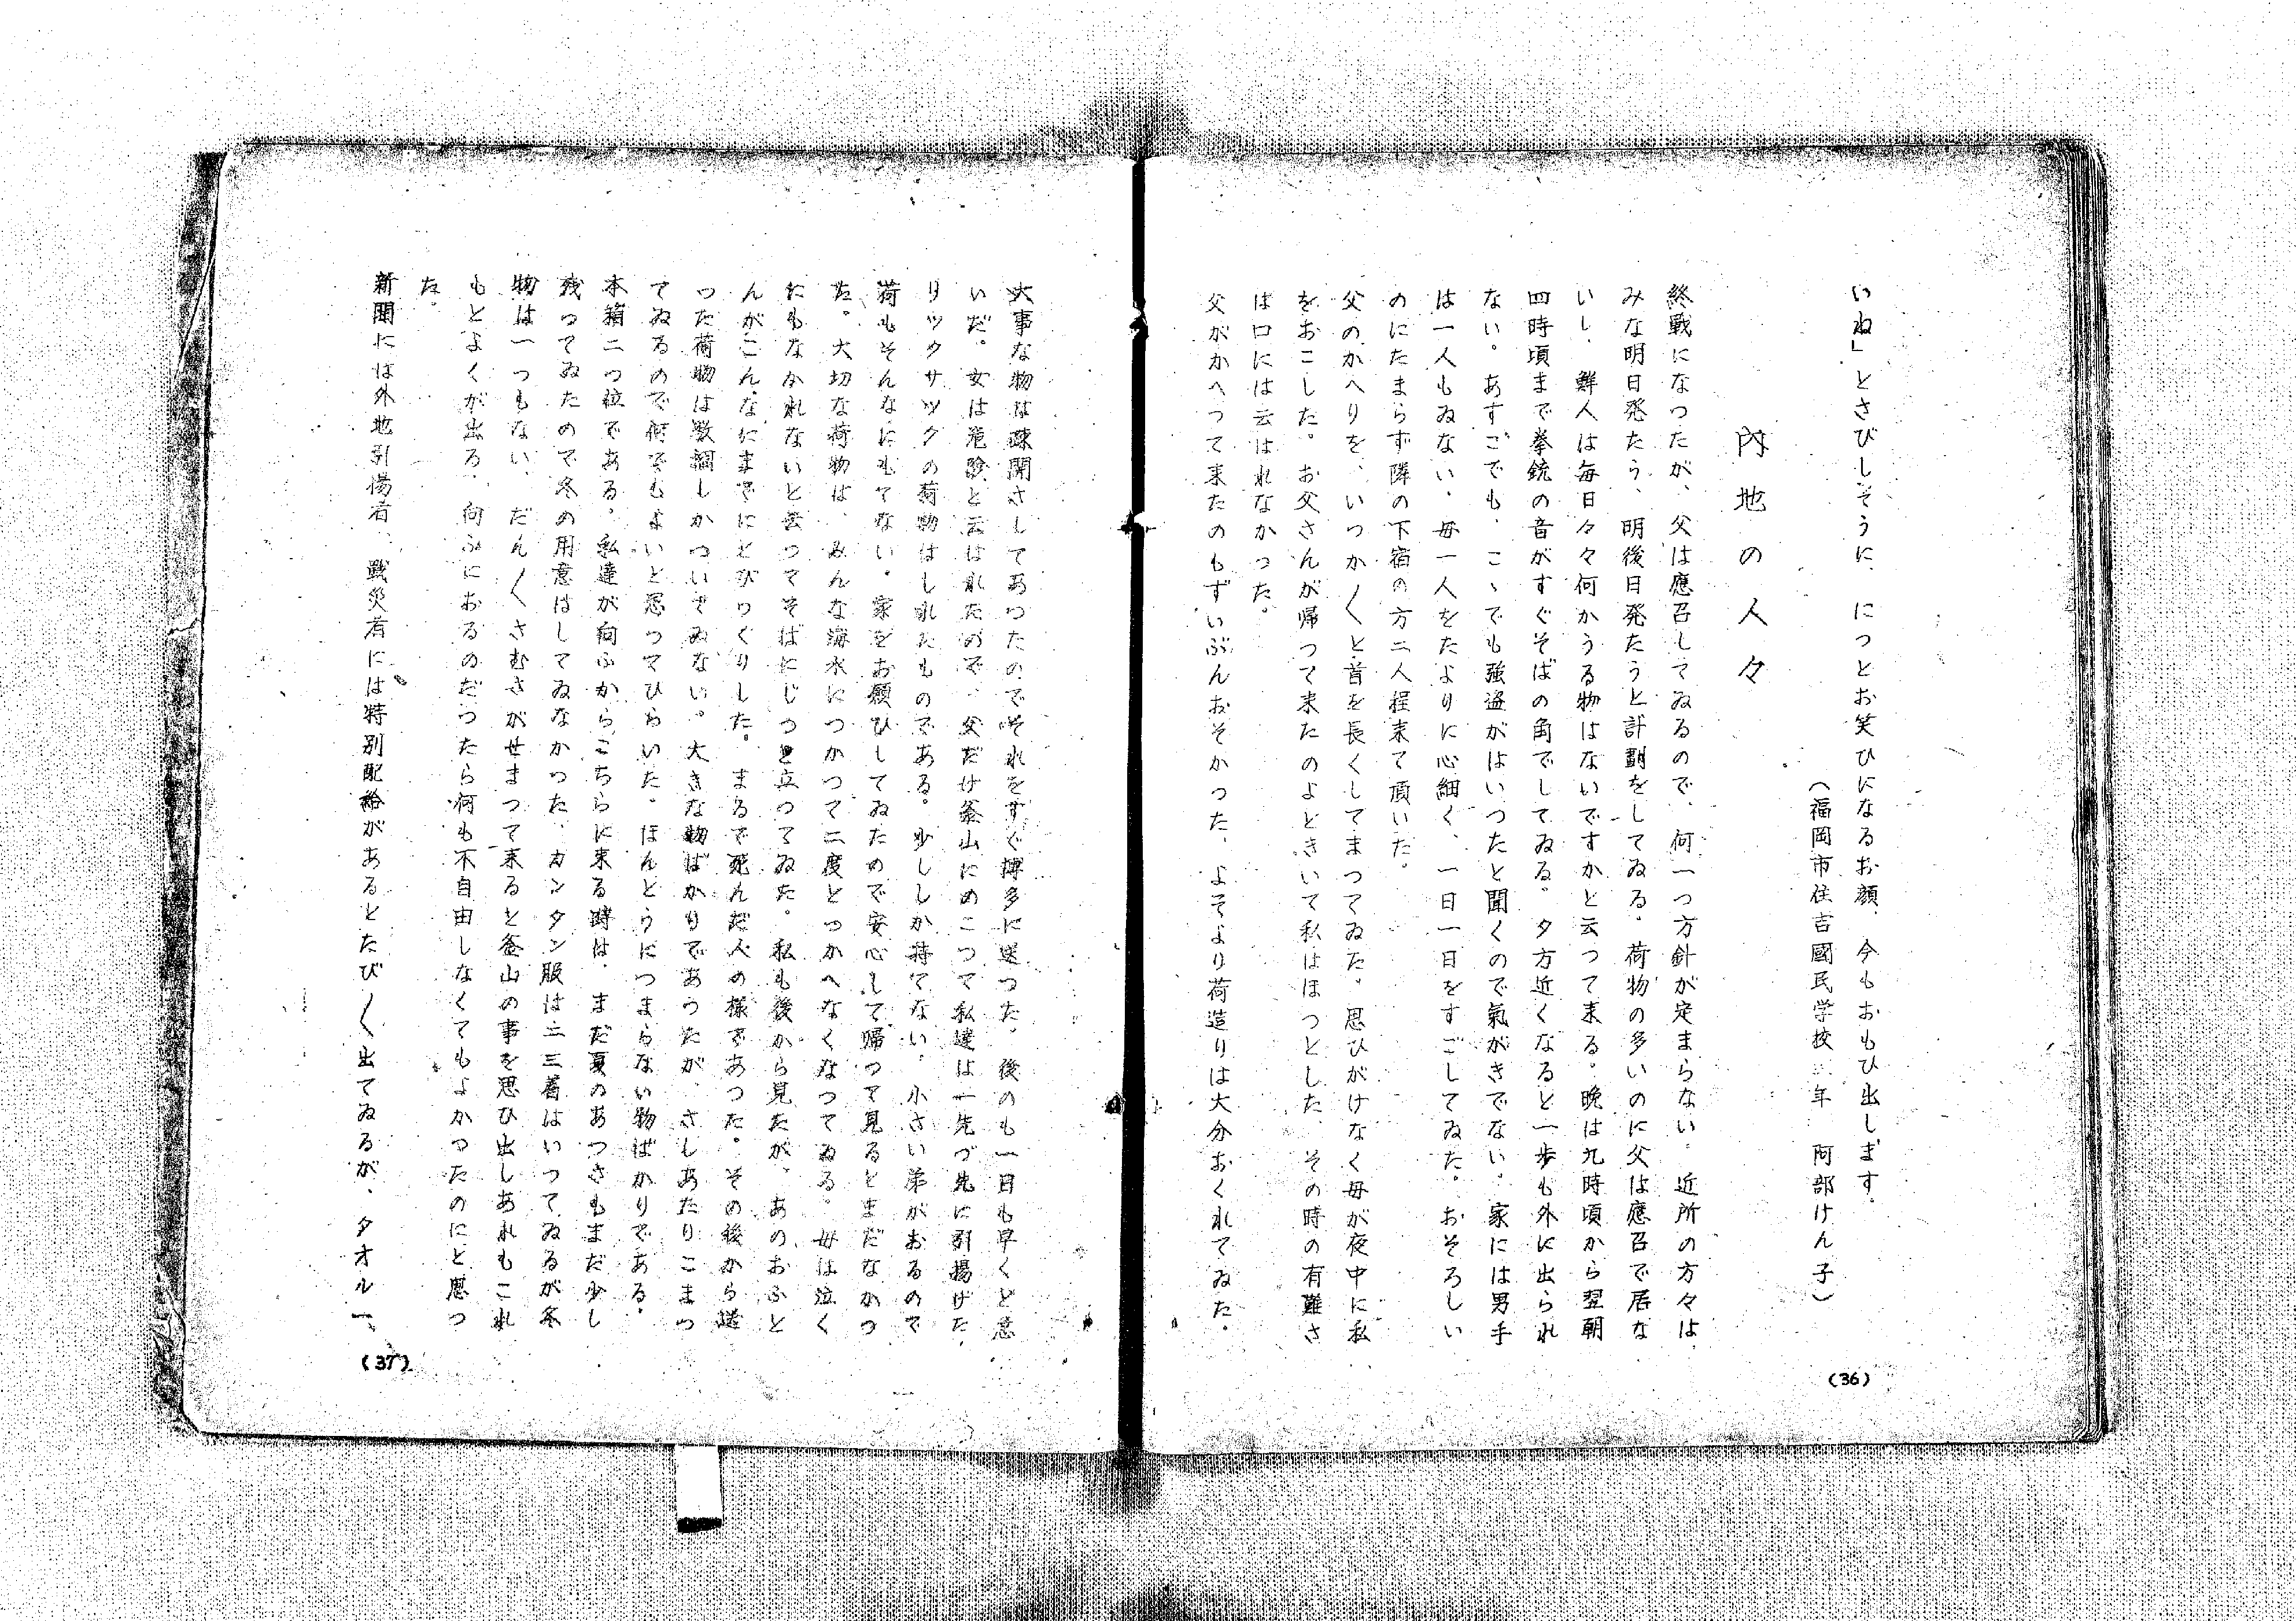 いね」とさびしそうに、につとお笑ひになるお顔、今もおもひ出します。
(福岡市住吉國民学校 年 阿部けん子)
內地の人々
終戦になつたが、父は應召してゐるので、何一つ方針が定まらない。近所の方々は
みな明日発たう、明後日発たうと計劃をしてゐる。荷物の多いのに父は應召で居な
いし、鮮人は每日々々何かうる物はないですかと云つて来る。晩は九時頃から翌朝
四時頃まで拳銃の音がすぐそばの角でしてゐる。夕方近くなると一歩も外に出られ
ない。あすこでも、こゝでも強盗がはいつたと聞くので氣がきでない。家には男手
は一人もゐない。母一人をたよりに心細く、一日一日をすごしてゐた。おそろしい
のにたまらず隣の下宿の方二人程来て頂いた。
父のかへりを、いつか〱と首を長くしてまつてゐた。思ひがけなく母が夜中に私
をおこした。お父さんが帰つて来たのよときいて私はほつとした、その時の有難さ
は口には云はれなかつた。
父がかへつて来たのもずいぶんおそかつた、よそより荷造りは大分おくれてゐた。
(36)
大事な物は疎開さしてあつたのでそれをすぐ博多に送つた。後のも一日も早くと急
いだ。女は危険と云はれたので、父だけ釜山にのこつて私達は一先づ先に引揚げた、
リツクサツクの荷物はしれたものである。少ししか持てない。小さい弟がおるので
荷もそんなにもてない。家をお願ひしてゐたので安心して帰つて見るとまだなかつ
た。大切な荷物は、みんな海水につかつて二度とつかへなくなつてゐる。母は泣く
にもなかれないと云つてそばにじつと立つてゐた。私も後から見たが、あのおふと
んがこんなにまでにとびつくりした。まるで死んだ人の様であつた。その後から送
つた荷物は数個しかついてゐない。大きな物ばかりであつたが、さしあたりこまつ
てゐるので何でもよいと思つてひらいた。ほんとうにつまらない物ばかりである。
本箱二つ位である。私達が向ふからこちらに来る時は、まだ夏のあつさもまだ少し
残つてゐたので冬の用意はしてゐなかつた、カンタン服は二三着はいつてゐるが冬
物は一つもない、だん〱さむさがせまつて来ると釜山の事を思ひ出しあれもこれ
もとよくが出る、向ふにおるのだつたら何も不自由しなくてもよかつたのにと思つ
た。
新聞には外地引揚者、戦災者には特別配給があるとたび〱出てゐるが、タオル一、
(37)